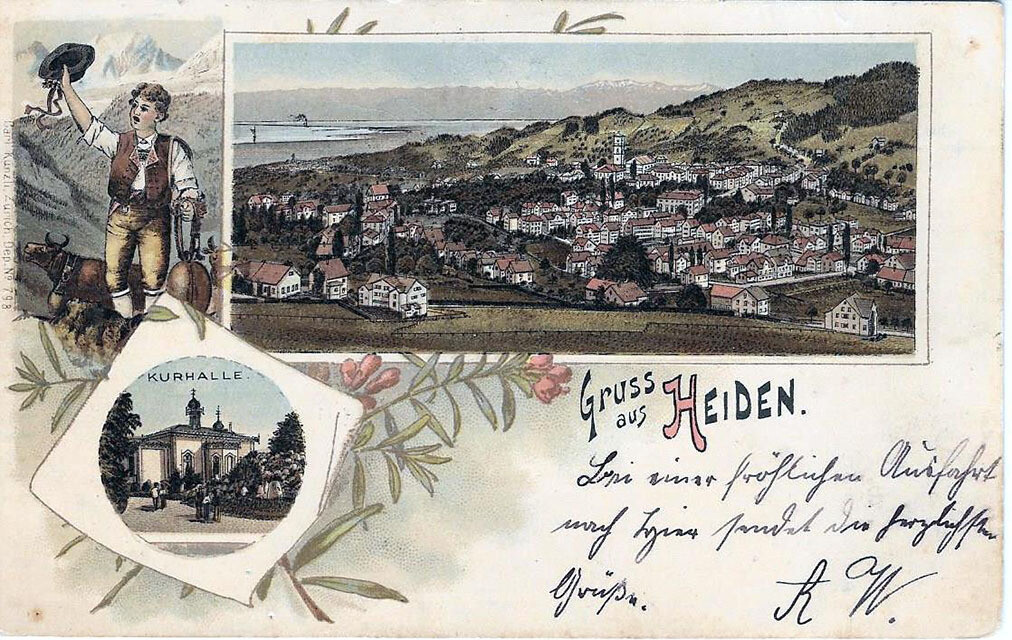 Carl Künzli, Zürich Dep. No. 793
KURHALLE.
Gruss
aus HEIDEN.
Bei einer fröhlichen Ausfahrt
nach hier sendet die herzlichsten
Grüße.
A W.